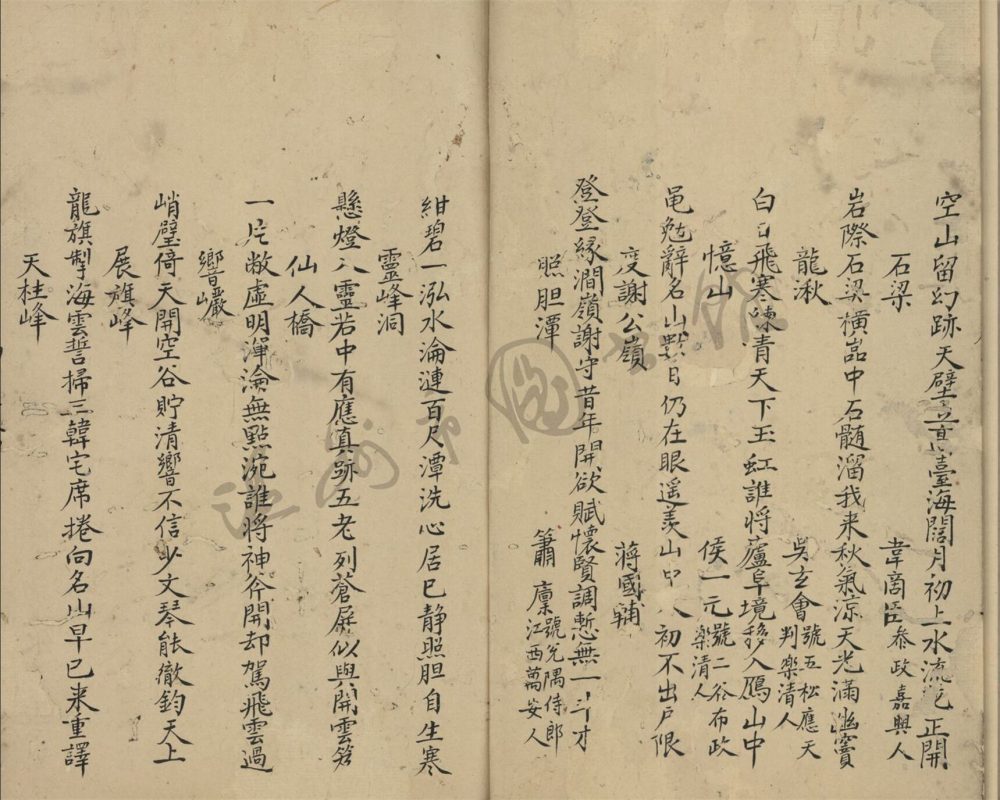 空山留幻跡天壁立臺海闊月初上水流花正開
石梁 韋商臣參政嘉興人
岩際石梁橫嵓中石髓溜我来秋氣凉天光滿幽竇
龍湫 吳玄會號五松應天判樂清人
白日飛寒涷青天下玉虹誰將蘆阜境移入鴈山中
憶山 侯一元號二谷布政樂清人
黽勉辭名山數日仍在眼遥羡山中人初不出户限
度謝公嶺 蔣國輔
登登緣澗嶺謝守昔年開欲賦懷賢調慙無一斗才
照胆潭 蕭廪號兌隅侍郎江西萬安人
紺碧一泓水淪漣百尺潭洗心居已静照胆自生寒
靈峰洞
懸燈入靈岩中有應真跡五老列蒼屏似與開雲笈
仙人橋
一片敞虛明渾淪無點涴誰將神斧開却駕飛雲過
響巗
峭壁倚天開空谷貯清響不信少文琴能徹鈞天上
展旗峰
龍旗掣海雲誓掃三韓宅席捲向名山早已来重譯
天柱峰
温州市圖書館